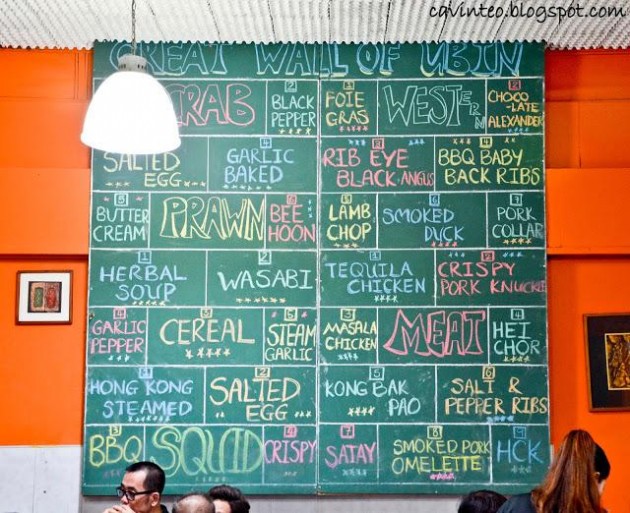 cqvinteo.blogspot.com
GREAT WALL OF UBIN
CRAB
2 BLACK PEPPER
1 FOIE GRAS
WESTERN
2 CHOCO-LATE ALEXANDER
SALTED EGG
4 GARLIC BAKED
3 RIB EYE BLACK ANGUS
4 BBQ BABY BACK RIBS
5 BUTTER CREAM
PRAWN
6 BEE HOON
5 LAMB CHOP
6 SMOKED DUCK
7 PORK COLLAR
1 HERBAL SOUP
2 WASABI
1 TEQUILA CHICKEN
2 CRISPY PORK KNUCKLE
4 GARLIC PEPPER
5 CEREAL
5 STEAM GARLIC
3 MASALA CHICKEN
MEAT
4 HEI CHOR
1 HONG KONG STEAMED
2 SALTED EGG
5 KONG BAK PAO
6 SALT & PEPPER RIBS
3 BBQ
SQUID
4 CRISPY
7 SATAY
8 SMOKED PORK OMELETTE
HCK